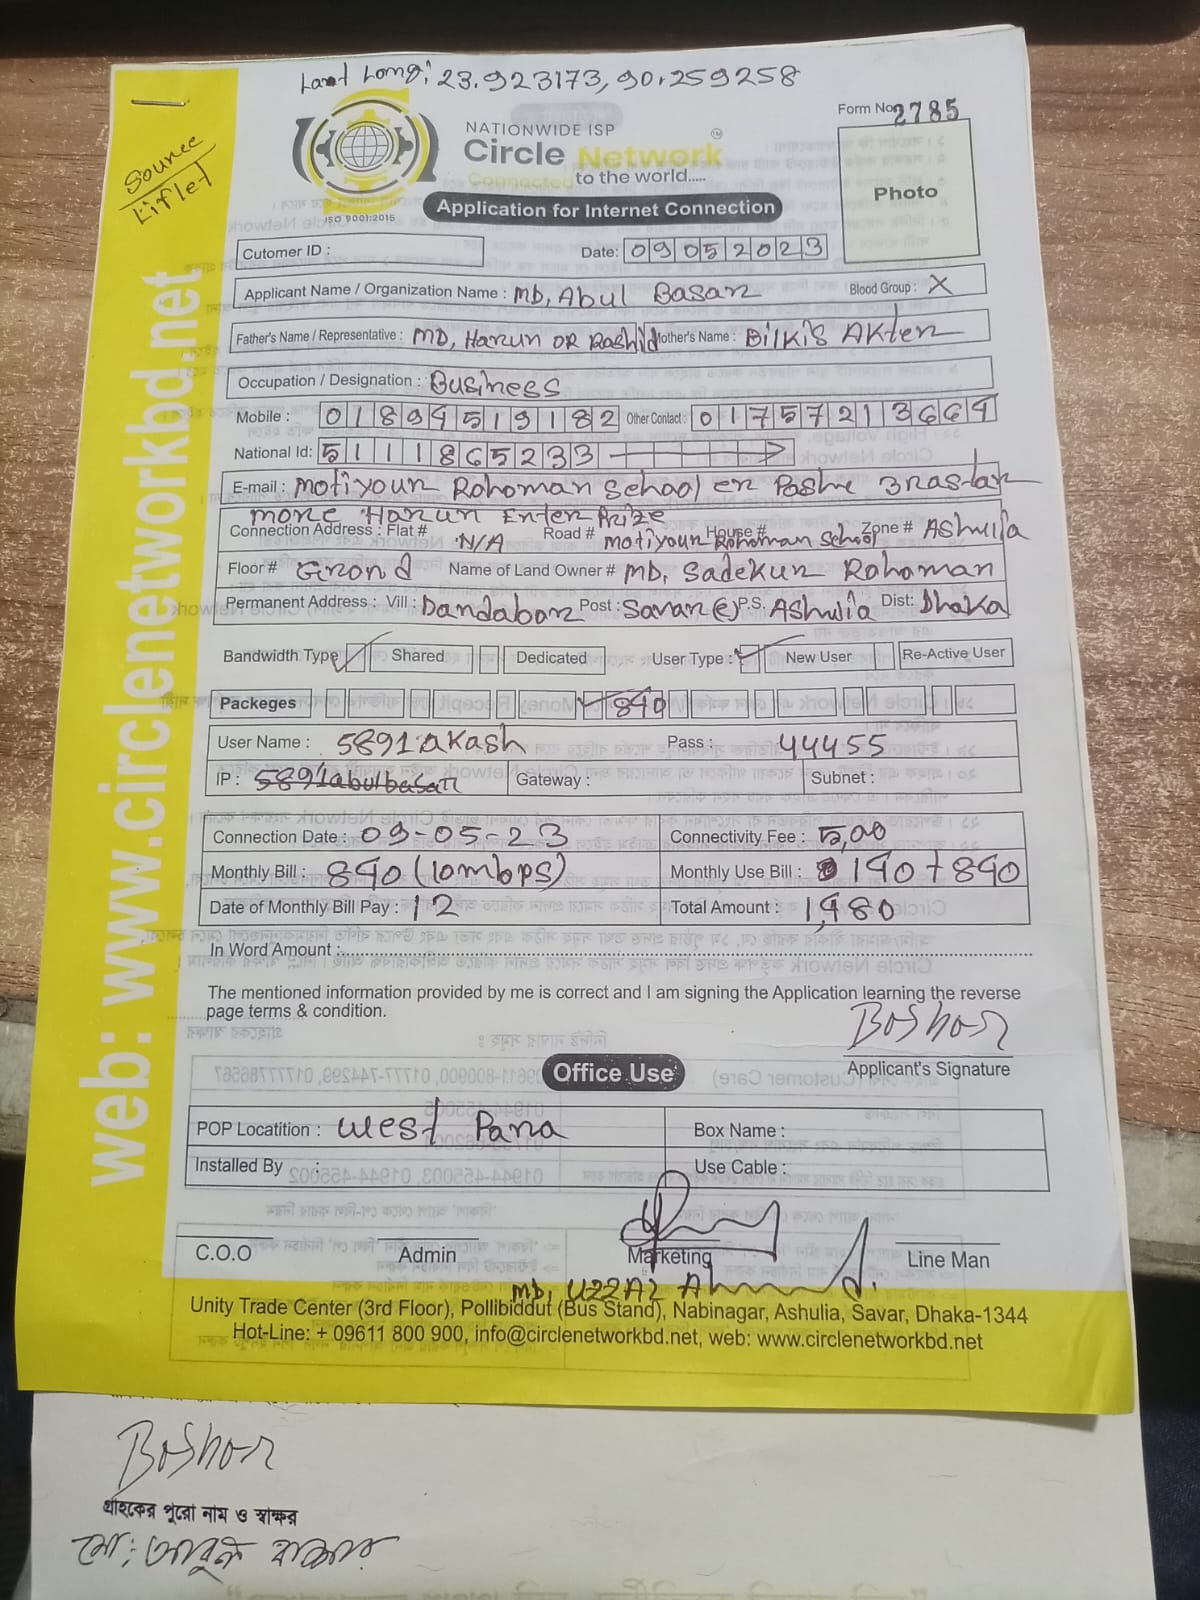 Lant Long: 23.923173, 90.259258
Source
Liflet
Form No 2785
NATIONWIDE ISP
Circle Network
Connected to the world.....
ISO 9001:2015
Photo
Application for Internet Connection
Cutomer ID :
Date: 09052023
Applicant Name / Organization Name : MD, Abul Basar Blood Group : X
Father's Name / Representative : MD, Harun OR Rashid Mother's Name : Bilkis Akter
Occupation / Designation : Business
Mobile : 01894519182 Other Contact : 01757213664
National Id: 5111865233
E-mail : Motiyour Rohoman School er Pashe 3 rastar
more Harun Enter Prize
Connection Address : Flat # N/A Road # House # Motiyour Rohoman School Zone # Ashulia
Floor # Grond Name of Land Owner # MD, Sadekur Rohoman
Permanent Address : Vill : Dandabor Post : Savar (e) P.S. Ashulia Dist: Dhaka
Bandwidth Type Shared Dedicated User Type : New User Re-Active User
Packeges 840
User Name : 5891akash Pass : 44455
IP : 5891abulbasar Gateway : Subnet :
Connection Date : 09-05-23 Connectivity Fee : 5,00
Monthly Bill : 840 (10mbps) Monthly Use Bill : 140 + 840
Date of Monthly Bill Pay : 12 Total Amount : 1,480
In Word Amount :
The mentioned information provided by me is correct and I am signing the Application learning the reverse
page terms & condition.
Boshor
Applicant's Signature
Office Use
POP Locatition : West Para Box Name :
Installed By : Use Cable :
C.O.O Admin Marketing Line Man
MD, UZZAL Ahmed.
Unity Trade Center (3rd Floor), Pollibiddut (Bus Stand), Nabinagar, Ashulia, Savar, Dhaka-1344
Hot-Line: + 09611 800 900, info@circlenetworkbd.net, web: www.circlenetworkbd.net
web: www.circlenetworkbd.net
Boshor
গ্রাহকের পুরো নাম ও স্বাক্ষর
মো: আবুল বাশার